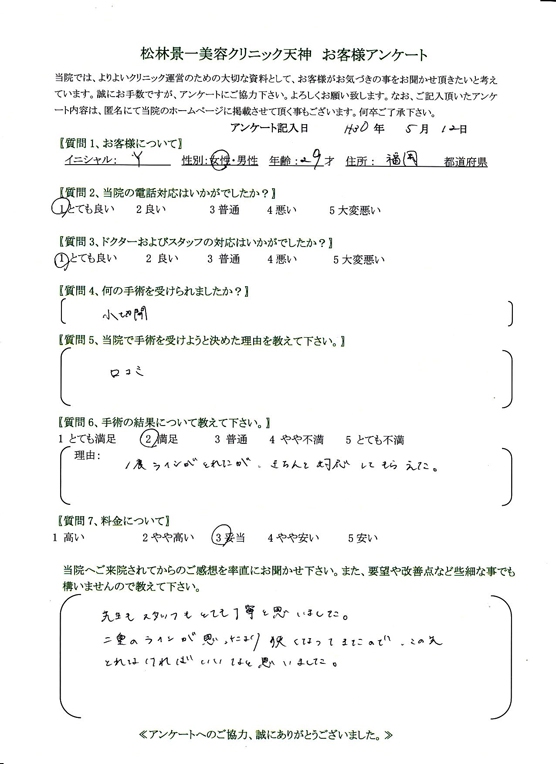 松林景一美容クリニック天神 お客様アンケート
当院では、よりよいクリニック運営のための大切な資料として、お客様がお気づきの事をお聞かせ頂きたいと考え
ています。誠にお手数ですが、アンケートにご協力下さい。よろしくお願い致します。なお、ご記入頂いたアンケ
ート内容は、匿名にて当院のホームページに掲載させて頂く事もございます。何卒ご了承下さい。
アンケート記入日 H30 年 5 月 12 日
〖質問1、お客様について〗
イニシャル： Y 性別：女性・男性 年齢：29才 住所： 福岡 都道府県
〖質問2、当院の電話対応はいかがでしたか？〗
1とても良い 2 良い 3 普通 4 悪い 5 大変悪い
〖質問3、ドクターおよびスタッフの対応はいかがでしたか？〗
1とても良い 2 良い 3 普通 4 悪い 5 大変悪い
〖質問4、何の手術を受けられましたか？〗
小切開
〖質問5、当院で手術を受けようと決めた理由を教えて下さい。〗
口コミ
〖質問6、手術の結果について教えて下さい。〗
1 とても満足 2 満足 3 普通 4 やや不満 5 とても不満
理由：
1度ラインがとれたが、きちんと対応してもらえた。
〖質問7、料金について〗
1 高い 2 やや高い 3 妥当 4 やや安い 5 安い
当院へご来院されてからのご感想を率直にお聞かせ下さい。また、要望や改善点など些細な事でも
構いませんので教えて下さい。
先生もスタッフもとても丁寧と思いました。
二重のラインが思ったより狭くなってきたので、この先
とれなければいいなと思いました。
≪アンケートへのご協力、誠にありがとうございました。≫